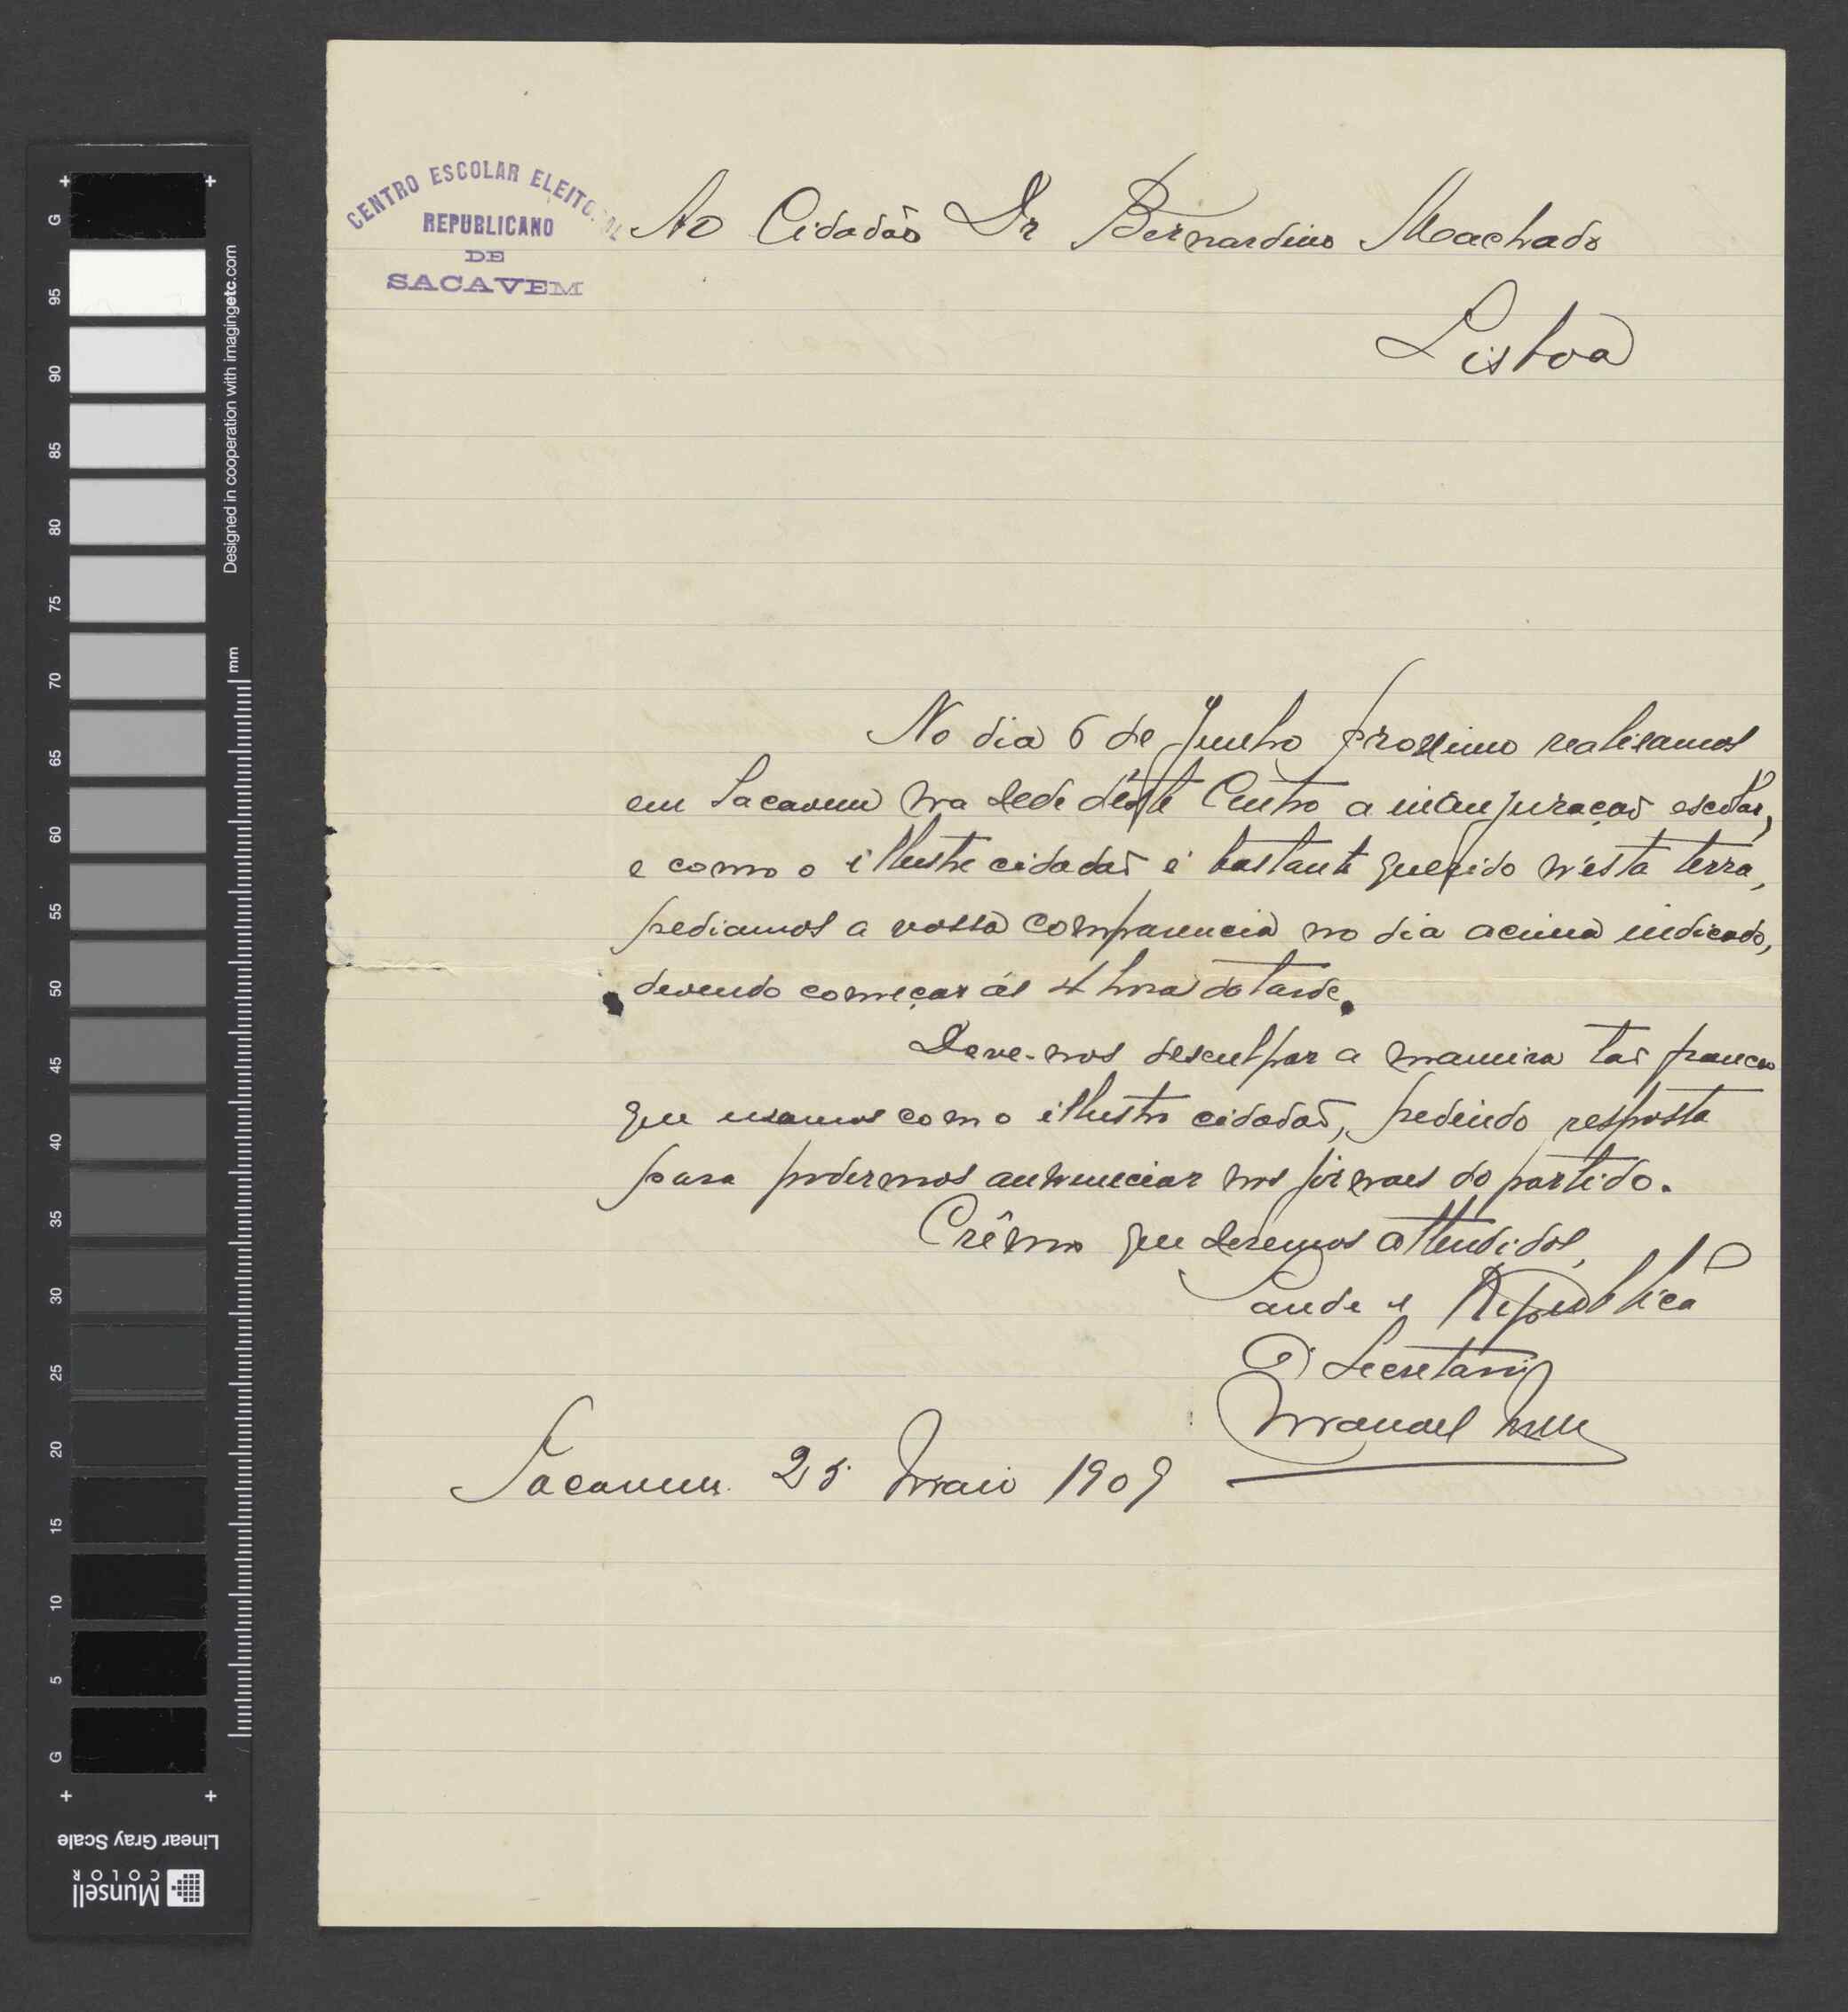 CENTRO ESCOLAR ELEITORAL
REPUBLICANO
DE
SACAVEM
Ao Cidadão Dr Bernardino Machado
Lisboa
No dia 6 de Junho proximo realisamos
em Sacavem na sede déste Centro a inauguração escolar,
e como o illustre cidadaõ é bastante querido n'ésta terra,
pediamos a vossa comparencia no dia acima indicado,
devendo começar ás 4 hora da tarde.
Deve-nos desculpar a maneira taõ franca
que usamos com o illustre cidadaõ, pedindo resposta
para podermos annunciar nos jornaes do partido.
Crêmos que seremos attendidos,
Saude e Republica
O Secretario
Manoel
Sacavem 25 Maio 1909
G 95 90 85 80 75 70 65 60 55 50 45 40 35 30 25 20 15 10 5 G
Designed in cooperation with imagingetc.com
mm
Linear Gray Scale
Munsell
COLOR